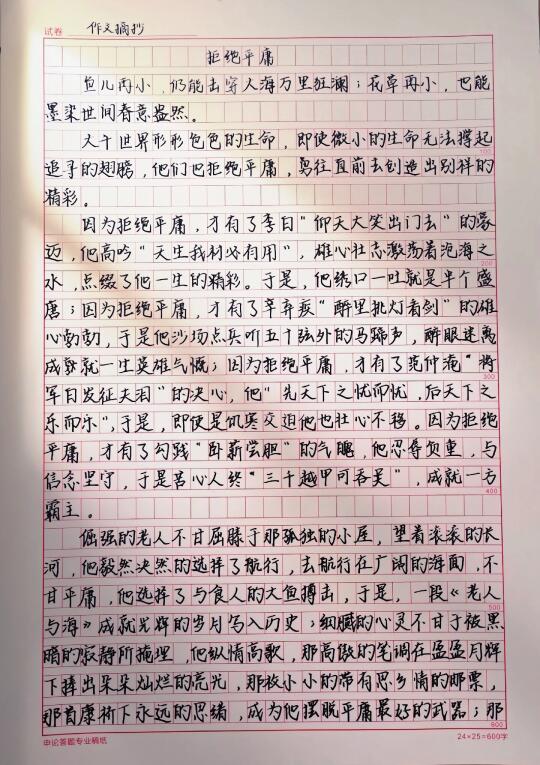 试卷 作文摘抄
拒绝平庸
鱼儿再小，仍能击穿大海万里狂澜；花草再小，也能
墨染世间春意盎然。
大千世界形形色色的生命，即使微小的生命无法撑起
100
追寻的翅膀，他们也拒绝平庸，勇往直前去创造出别样的
精彩。
因为拒绝平庸，才有了李白“仰天大笑出门去”的豪
迈，他高吟“天生我材必有用”，雄心壮志激荡着沧海之
200
水，点缀了他一生的精彩。于是，他绣口一吐就是半个盛
唐；因为拒绝平庸，才有了辛弃疾“醉里挑灯看剑”的雄
心勃勃，于是他沙场点兵听五十弦外的马蹄声，醉眼迷离
成就就一生英雄气慨；因为拒绝平庸，才有了范仲淹“将
300
军白发征夫泪”的决心，他“先天下之忧而忧，后天下之
乐而乐”，于是，即使是饥寒交迫他也壮心不移。因为拒绝
平庸，才有了勾践“卧薪尝胆”的气魄，他忍辱负重，与
信念坚守，于是苦心人终“三千越甲可吞吴”，成就一方
400
霸主。
倔强的老人不甘屈膝于那孤独的小屋，望着滚滚的长
河，他毅然决然的选择了航行，去航行在广阔的海面，不
甘平庸，他选择了与食人的大鱼搏击，于是，一段《老人
500
与海》成就光辉的岁月写入历史；细腻的心灵不甘于被黑
暗的寂静所掩埋，他纵情高歌，那高傲的笔调在盈盈月辉
下捧出朵朵灿烂的亮光，那枚小小的带有思乡情的邮票，
那首康桥下永远的思绪，成为他摆脱平庸最好的武器；那
600
申论答题专业稿纸 24×25=600字